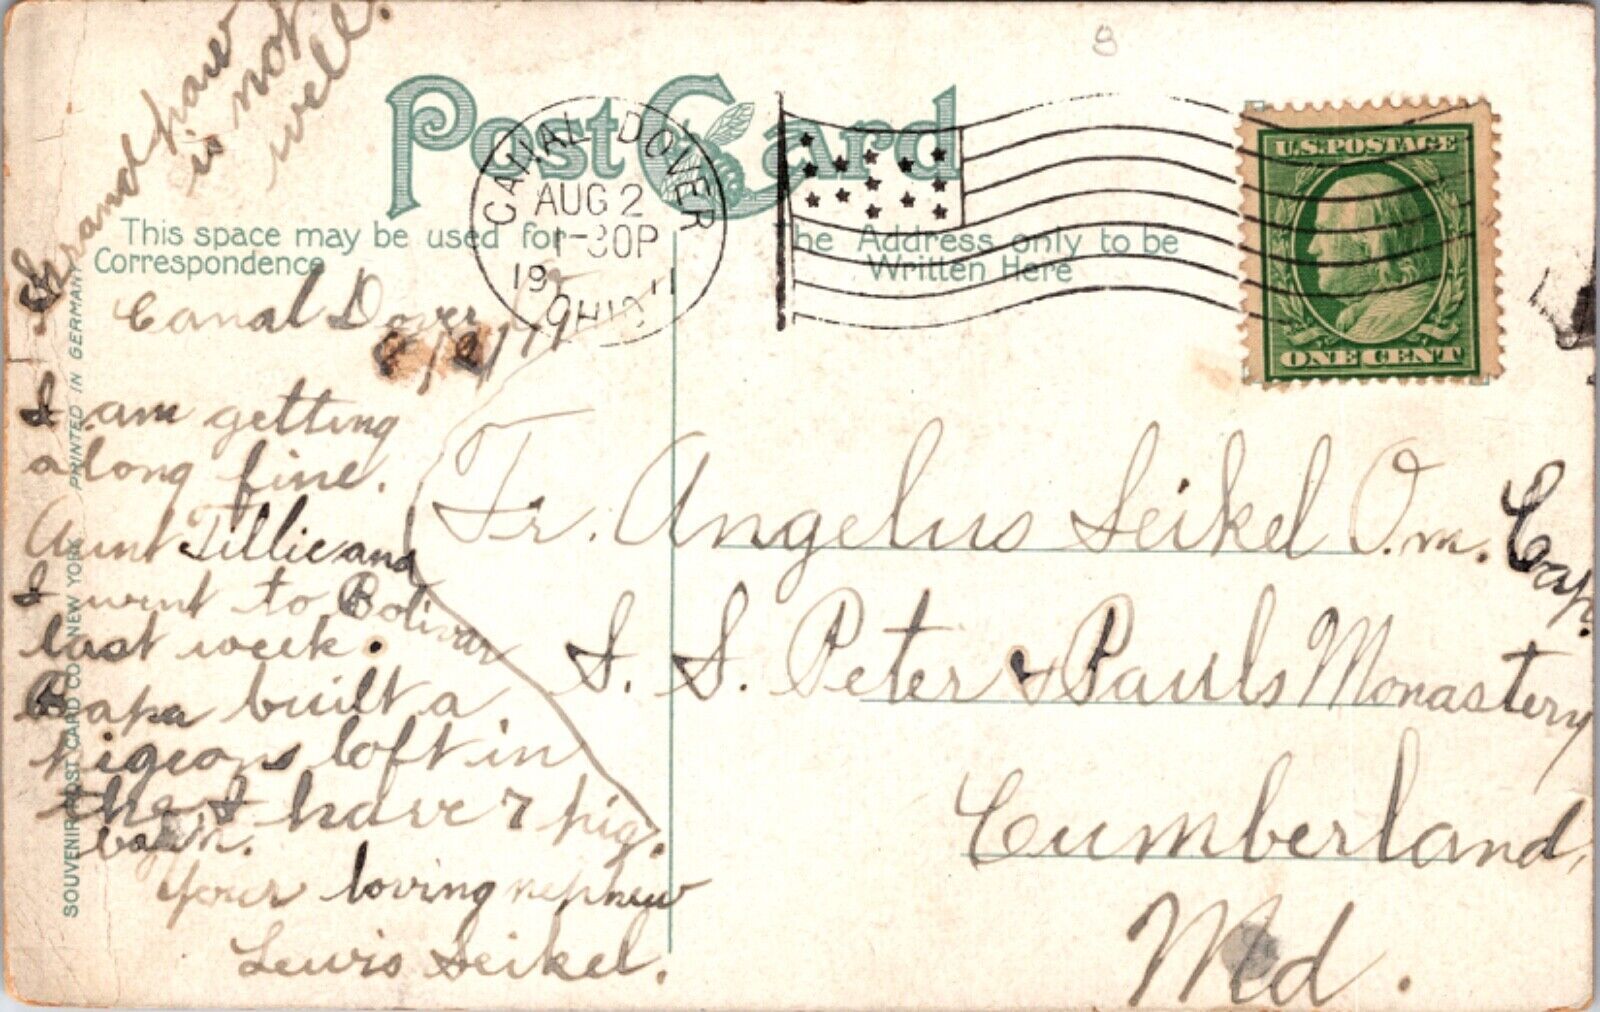 Grandpaw
is not
well.
Post Card
CANAL DOVER
AUG 2
1-30P
19 11
OHIO
U.S. POSTAGE
ONE CENT
This space may be used for
Correspondence
The Address only to be
Written Here
SOUVENIR POST CARD CO. NEW YORK PRINTED IN GERMANY
Canal Dover
8/2/11
I am getting
along fine.
Aunt Tillie and
I went to Bolivar
last week.
Papa built a
pigeons loft in
the I have 7 pig.
barn.
Your loving nephew
Lewis Seikel.
Fr. Angelus Seikel O.m. Cap.
S. S. Peter & Pauls Monastery
Cumberland,
Md.